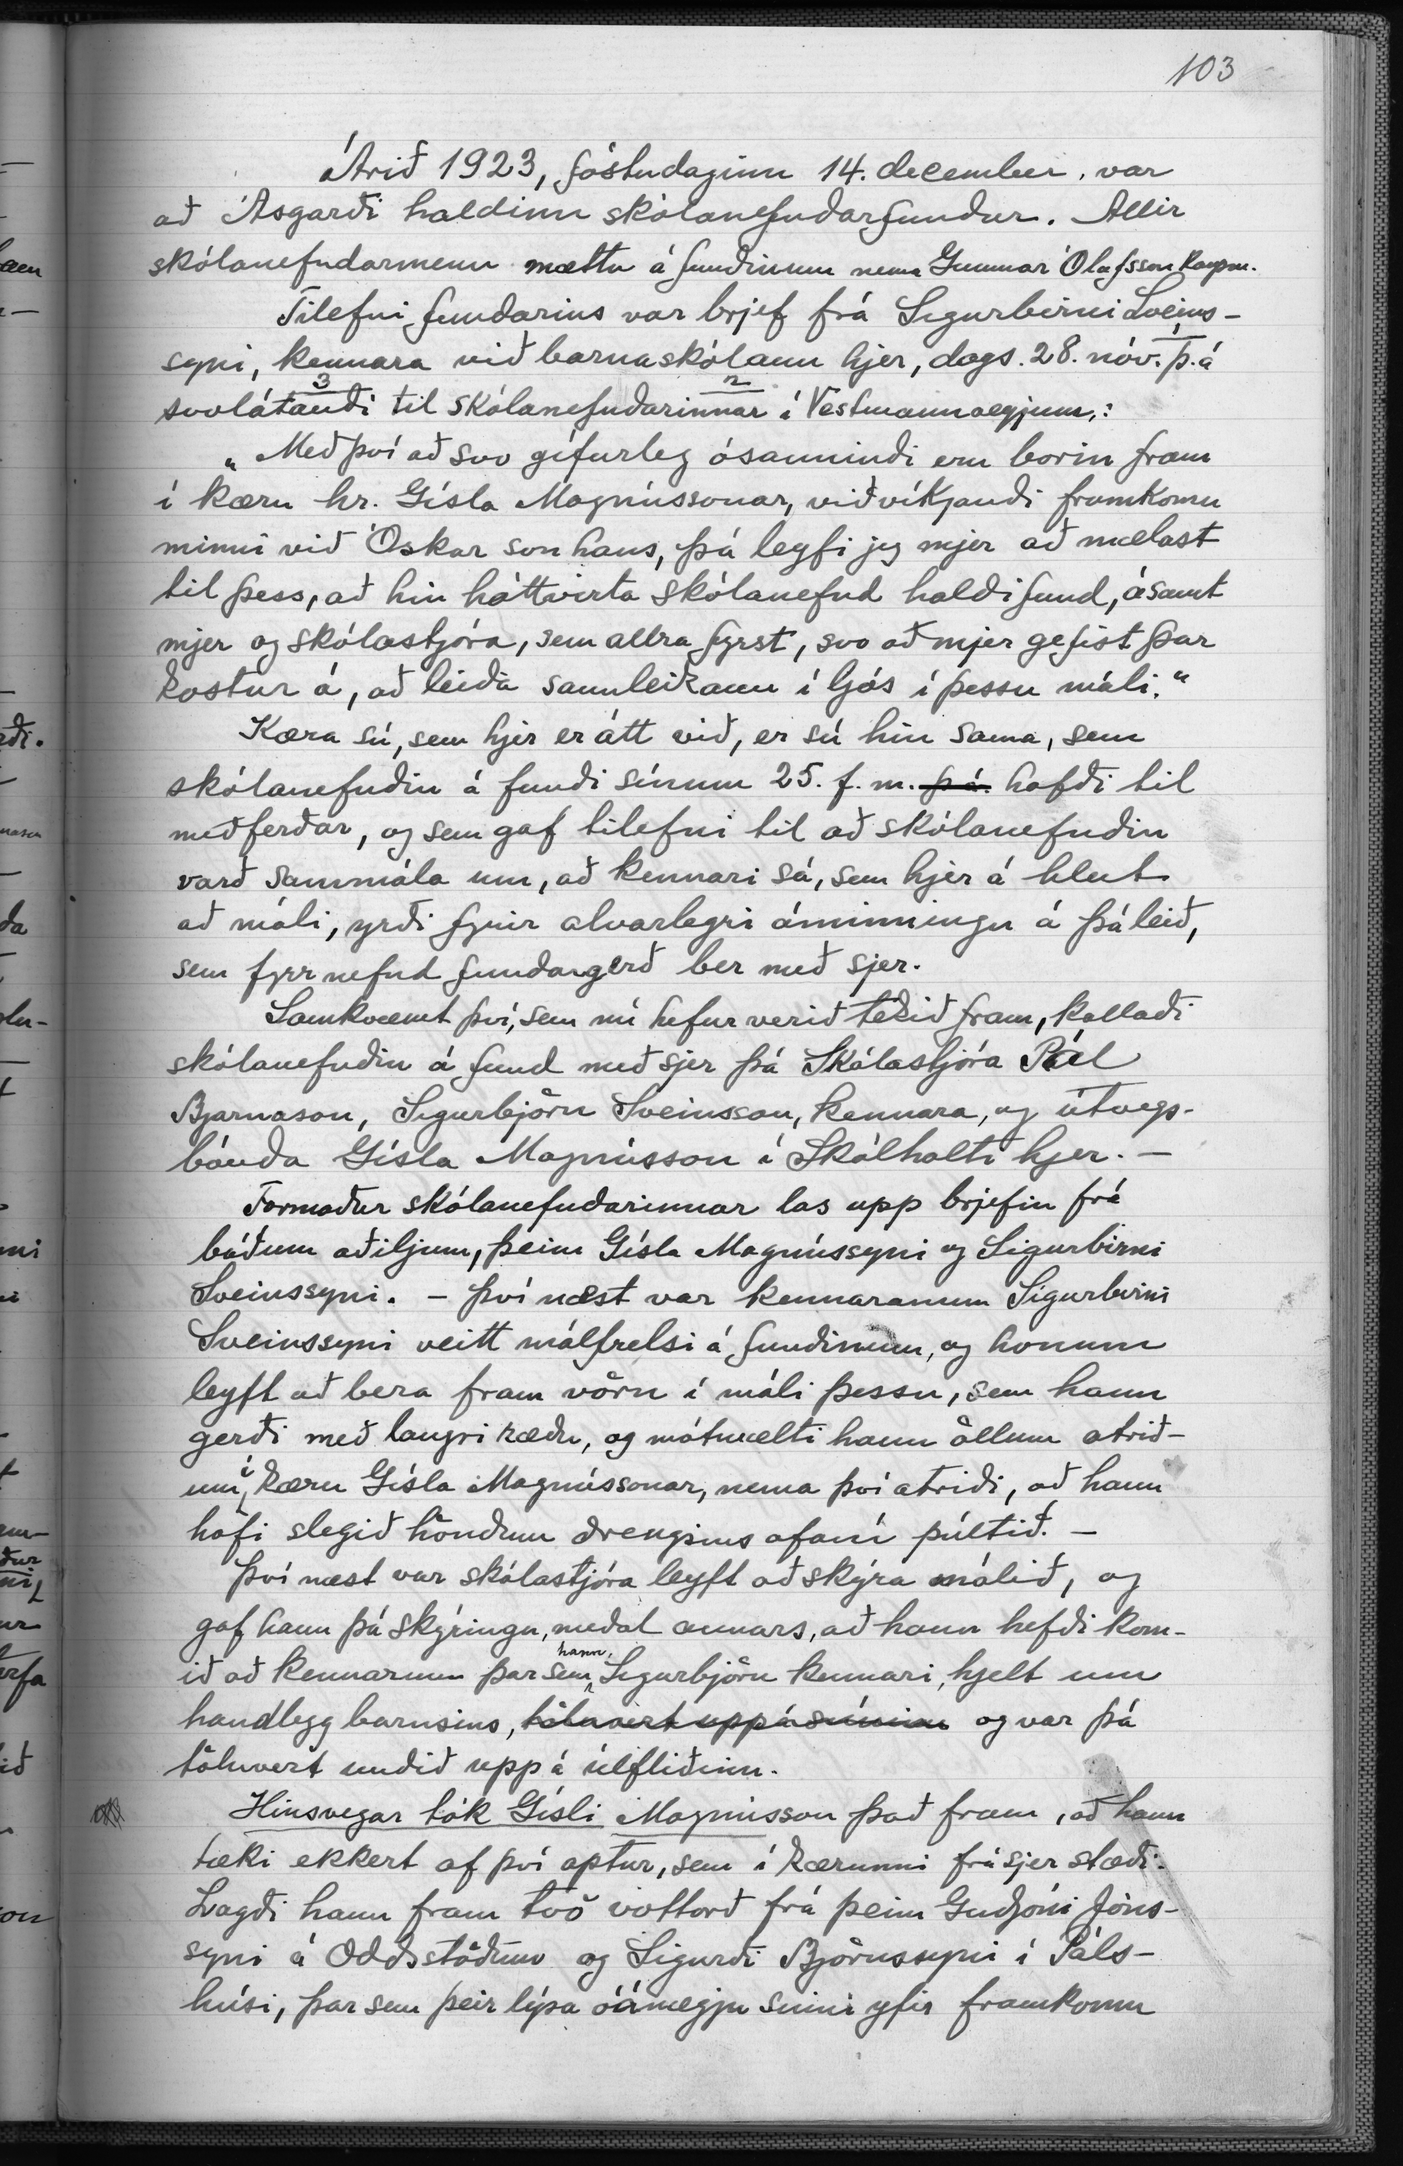 103
Árið 1923, föstudaginn 14. december, var
að Ásgarði haldinn skólanefndarfundur. Allir
skólanefndarmenn mættu á fundinum nema Gunnar Ólafsson kaupm.
Tilefni fundarins var brjef frá Sigurbirni Sveins-
syni, kennara við barnaskólann hjer, dags. 28. nóv. þ. á
svolátandi til skólanefndarinnar í Vestmannaeyjum,:
„Með því að svo gífurleg ósannindi eru borin fram
í kæru hr. Gísla Magnússonar, viðvíkjandi framkomu
minni við Óskar son hans, þá leyfi jeg mjer að mælast
til þess, að hin háttvirta skólanefnd haldi fund, ásamt
mjer og skólastjóra, sem allra fyrst, svo að mjer gefist þar
kostur á, að leiða sannleikann í ljós í þessu máli.“
Kæra sú, sem hjer er átt við, er sú hin sama, sem
skólanefndin á fundi sínum 25. f. m. þ á. hafði til
meðferðar, og sem gaf tilefni til að skólanefndin
varð sammála um, að kennari sá, sem hjer á hlut
að máli, yrði fyrir alvarlegri áminningu á þá leið,
sem fyrr nefnd fundargerð ber með sjer.
Samkvæmt því, sem nú hefur verið tekið fram, kallaði
skólanefndin á fund með sjer þá Skólastjóra Pál
Bjarnason, Sigurbjörn Sveinsson, kennara, og útvegs-
bónda Gísla Magnússon í Skálholti hjer. —
Formaður skólanefndarinnar las upp brjefin frá
báðum aðiljum, þeim Gísla Magnússyni og Sigurbirni
Sveinssyni. - Því næst var kennaranum Sigurbirni
Sveinssyni veitt málfrelsi á fundinum, og honum
leyft að bera fram vörn í máli þessu, sem hann
gerði með langri ræðu, og mótmælti hann öllum atrið-
um í kæru Gísla Magnússonar, nema því atriði, að hann
hafi slegið höndum drengsins ofaní púltið. —
Því næst var skólastjóra leyft að skýra málið, og
gaf hann þá skýringu, meðal annars, að hann hefði kom-
ið að kennarnum þar sem hann, Sigurbjörn kennari, hjelt um
handlegg barnsins, töluvert uppásnúinn og var þá
töluvert undið upp á úlfliðinn.
Hinsvegar tók Gísli Magnússon það fram, að hann
tæki ekkert af því aptur, sem í kærunni frá sjer stæði.
Lagði hann fram tvö vottorð frá þeim Guðjóni Jóns-
syni á Oddsstöðum og Sigurði Björnssyni í Páls-
húsi, þar sem þeir lýsa óánægju sinni yfir framkomu